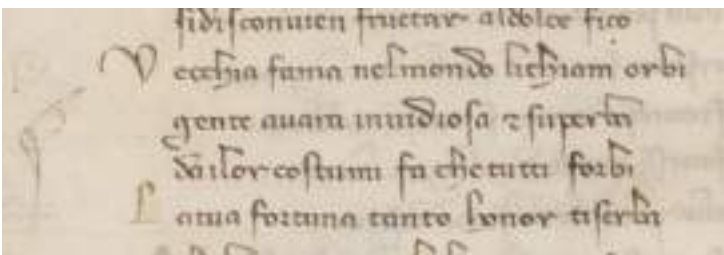 sidisconuien fructar aldolce fico
Vecchia fama nelmondo lichiam orbi
gente auara inuidiosa ⁊ superba
dailor costumi fa che tutti forbi
Latua fortuna tanto honor tiserba